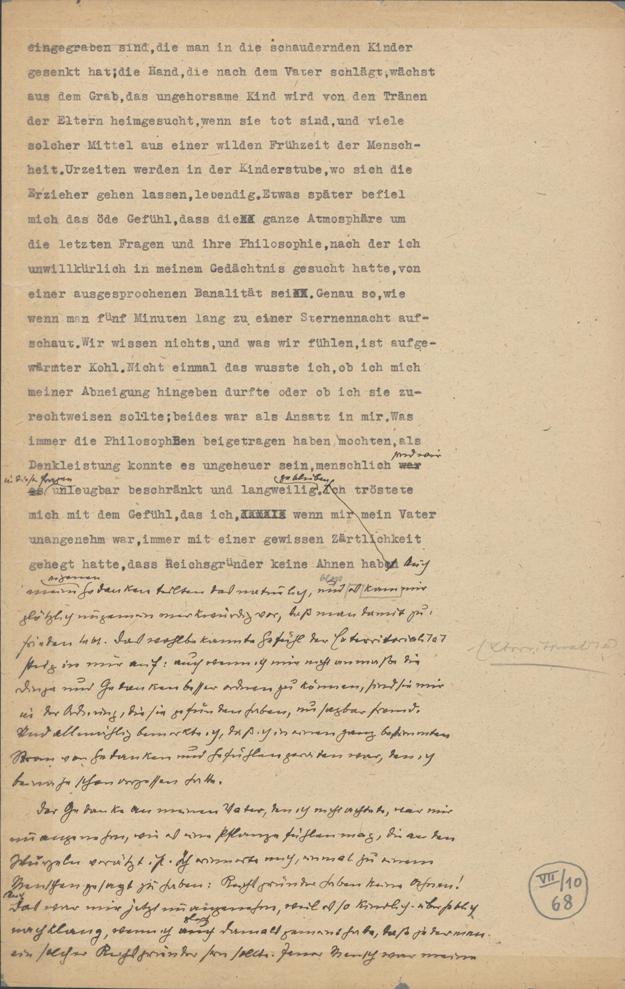 eingegraben sind,die man in die schaudernden Kinder
gesenkt hat;die Hand,die nach dem Vater schlägt,wächst
aus dem Grab,das ungehorsame Kind wird von den Tränen
der Eltern heimgesucht,wenn sie tot sind,und viele
solcher Mittel aus einer wilden Frühzeit der Mensch-
heit.Urzeiten werden in der Kinderstube,wo sich die
Erzieher gehen lassen,lebendig.Etwas später befiel
mich das öde Gefühl,dass die ganze Atmosphäre um
die letzten Fragen und ihre Philosophie,nach der ich
unwillkürlich in meinem Gedächtnis gesucht hatte,von
einer ausgesprochenen Banalität sei.Genau so,wie
wenn man fünf Minuten lang zu einer Sternennacht auf-
schaut.Wir wissen nichts,und was wir fühlen,ist aufge-
wärmter Kohl.Nicht einmal das wusste ich,ob ich mich
meiner Abneigung hingeben durfte oder ob ich sie zu-
rechtweisen sollte;beides war als Ansatz in mir.Was
immer die Philosophen beigetragen haben mochten,als
sind wir
Denkleistung konnte es ungeheuer sein,menschlich war
in diesen Fragen geblieben
es unleugbar beschränkt und langweilig.Ich tröstete
mich mit dem Gefühl,das ich, wenn mir mein Vater
unangenehm war,immer mit einer gewissen Zärtlichkeit
gehegt hatte,dass Reichsgründer keine Ahnen haben Auch
eigenen
meine Gedanken teilten das natürlich, und es kam mir
plötzlich ungemein merkwürdig vor, daß man damit zu-
frieden lebt. Das wohlbekannte Gefühl der Exterritorialität
stieg in mir auf: auch wenn ich mir nicht anmaße die
Dinge und Gedanken besser ordnen zu können, sind sie mir
in der Ordnung, die sie gefunden haben, unsagbar fremd.
Und allmählich bemerkte ich, daß ich in einen ganz bestimmten
Strom von Gedanken und Gefühlen geraten war, den ich
beinahe schon vergessen hatte.
Der Gedanke an meinen Vater, den ich nicht achtete, war mir
unangenehm, wie es eine Pflanze fühlen mag, die an den
Wurzeln verätzt ist. Ich erinnerte mich, einmal zu einem
Menschen gesagt zu haben: Reichsgründer haben keine Ahnen!
Das war mir jetzt unangenehm, weil es so kindlich-überheblich
nachklang, wenn ich auch damals gemeint habe, daß jedermann
ein solcher Reichsgründer sein sollte. Jener Mensch war meine
VII/10
68